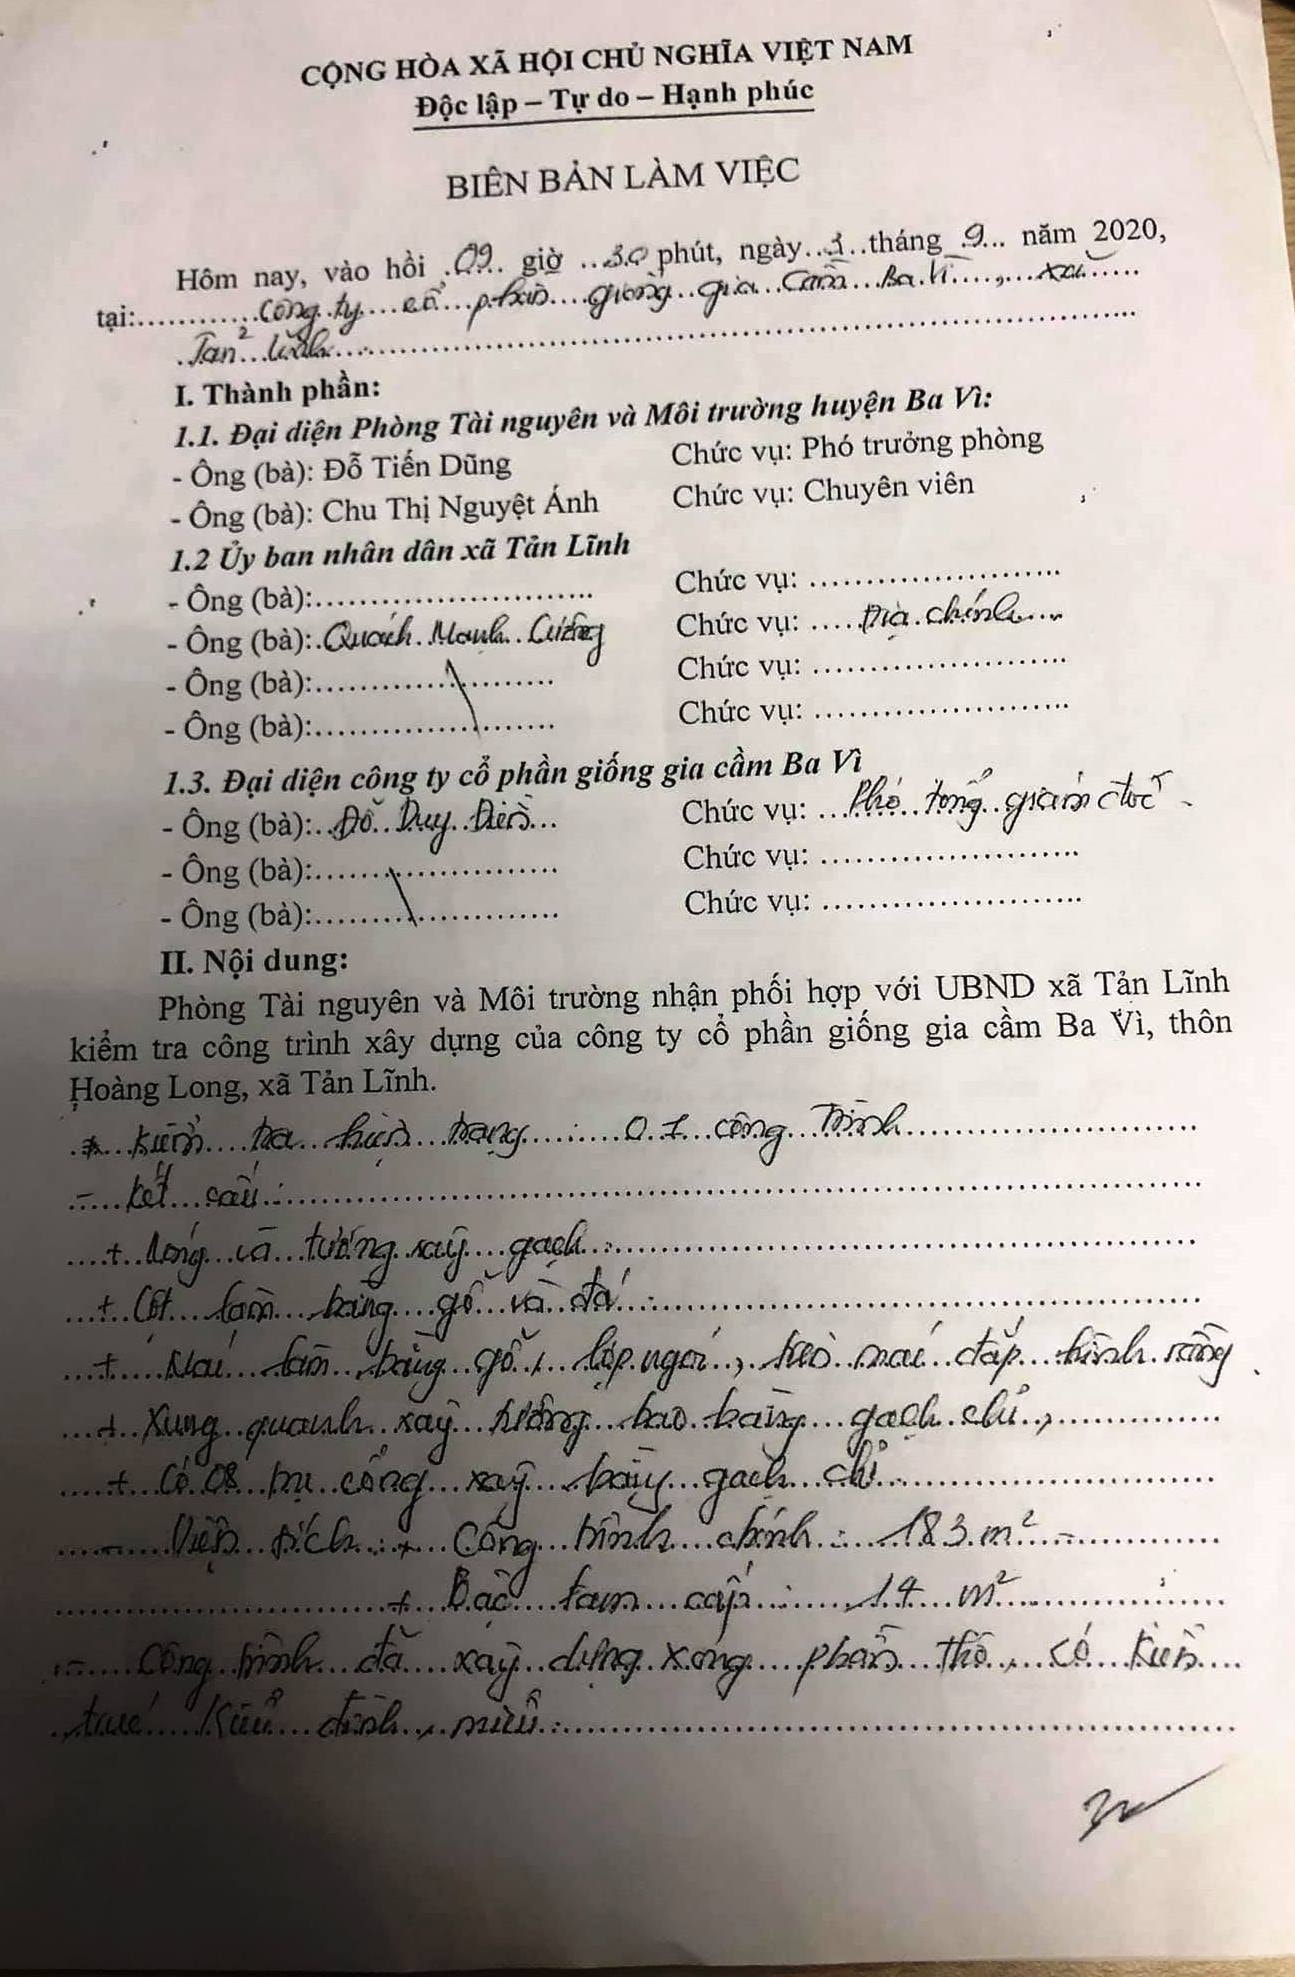 CỘNG HÒA XÃ HỘI CHỦ NGHĨA VIỆT NAM
Độc lập – Tự do – Hạnh phúc
BIÊN BẢN LÀM VIỆC
Hôm nay, vào hồi 09 giờ 30 phút, ngày 3 tháng 9 năm 2020,
tại: Công ty cổ phần giống gia cầm Ba Vì, xã
Tản Lĩnh
I. Thành phần:
1.1. Đại diện Phòng Tài nguyên và Môi trường huyện Ba Vì:
- Ông (bà): Đỗ Tiến Dũng Chức vụ: Phó trưởng phòng
- Ông (bà): Chu Thị Nguyệt Ánh Chức vụ: Chuyên viên
1.2 Ủy ban nhân dân xã Tản Lĩnh
- Ông (bà): Chức vụ:
- Ông (bà): Quách Mạnh Cường Chức vụ: Địa chính
- Ông (bà): Chức vụ:
- Ông (bà): Chức vụ:
1.3. Đại diện công ty cổ phần giống gia cầm Ba Vì
- Ông (bà): Đỗ Duy Chức vụ: Phó tổng giám đốc
- Ông (bà): Chức vụ:
- Ông (bà): Chức vụ:
II. Nội dung:
Phòng Tài nguyên và Môi trường nhận phối hợp với UBND xã Tản Lĩnh
kiểm tra công trình xây dựng của công ty cổ phần giống gia cầm Ba Vì, thôn
Hoàng Long, xã Tản Lĩnh.
* Kiểm tra hiện trạng: 01 công trình
- Kết cấu:
+ Móng và tường xây gạch.
+ Cột làm bằng gỗ và đá.
+ Mái làm bằng gỗ, lợp ngói, mái đắp hình rồng
+ Xung quanh xây tường bao bằng gạch chỉ,
+ Có 08 trụ cổng xây bằng gạch chỉ
- Diện tích: + Công trình chính: 183 m²
+ Bậc tam cấp: 14 m²
- Công trình đã xây dựng xong phần thô, có kiến
trúc kiểu đình, miếu.